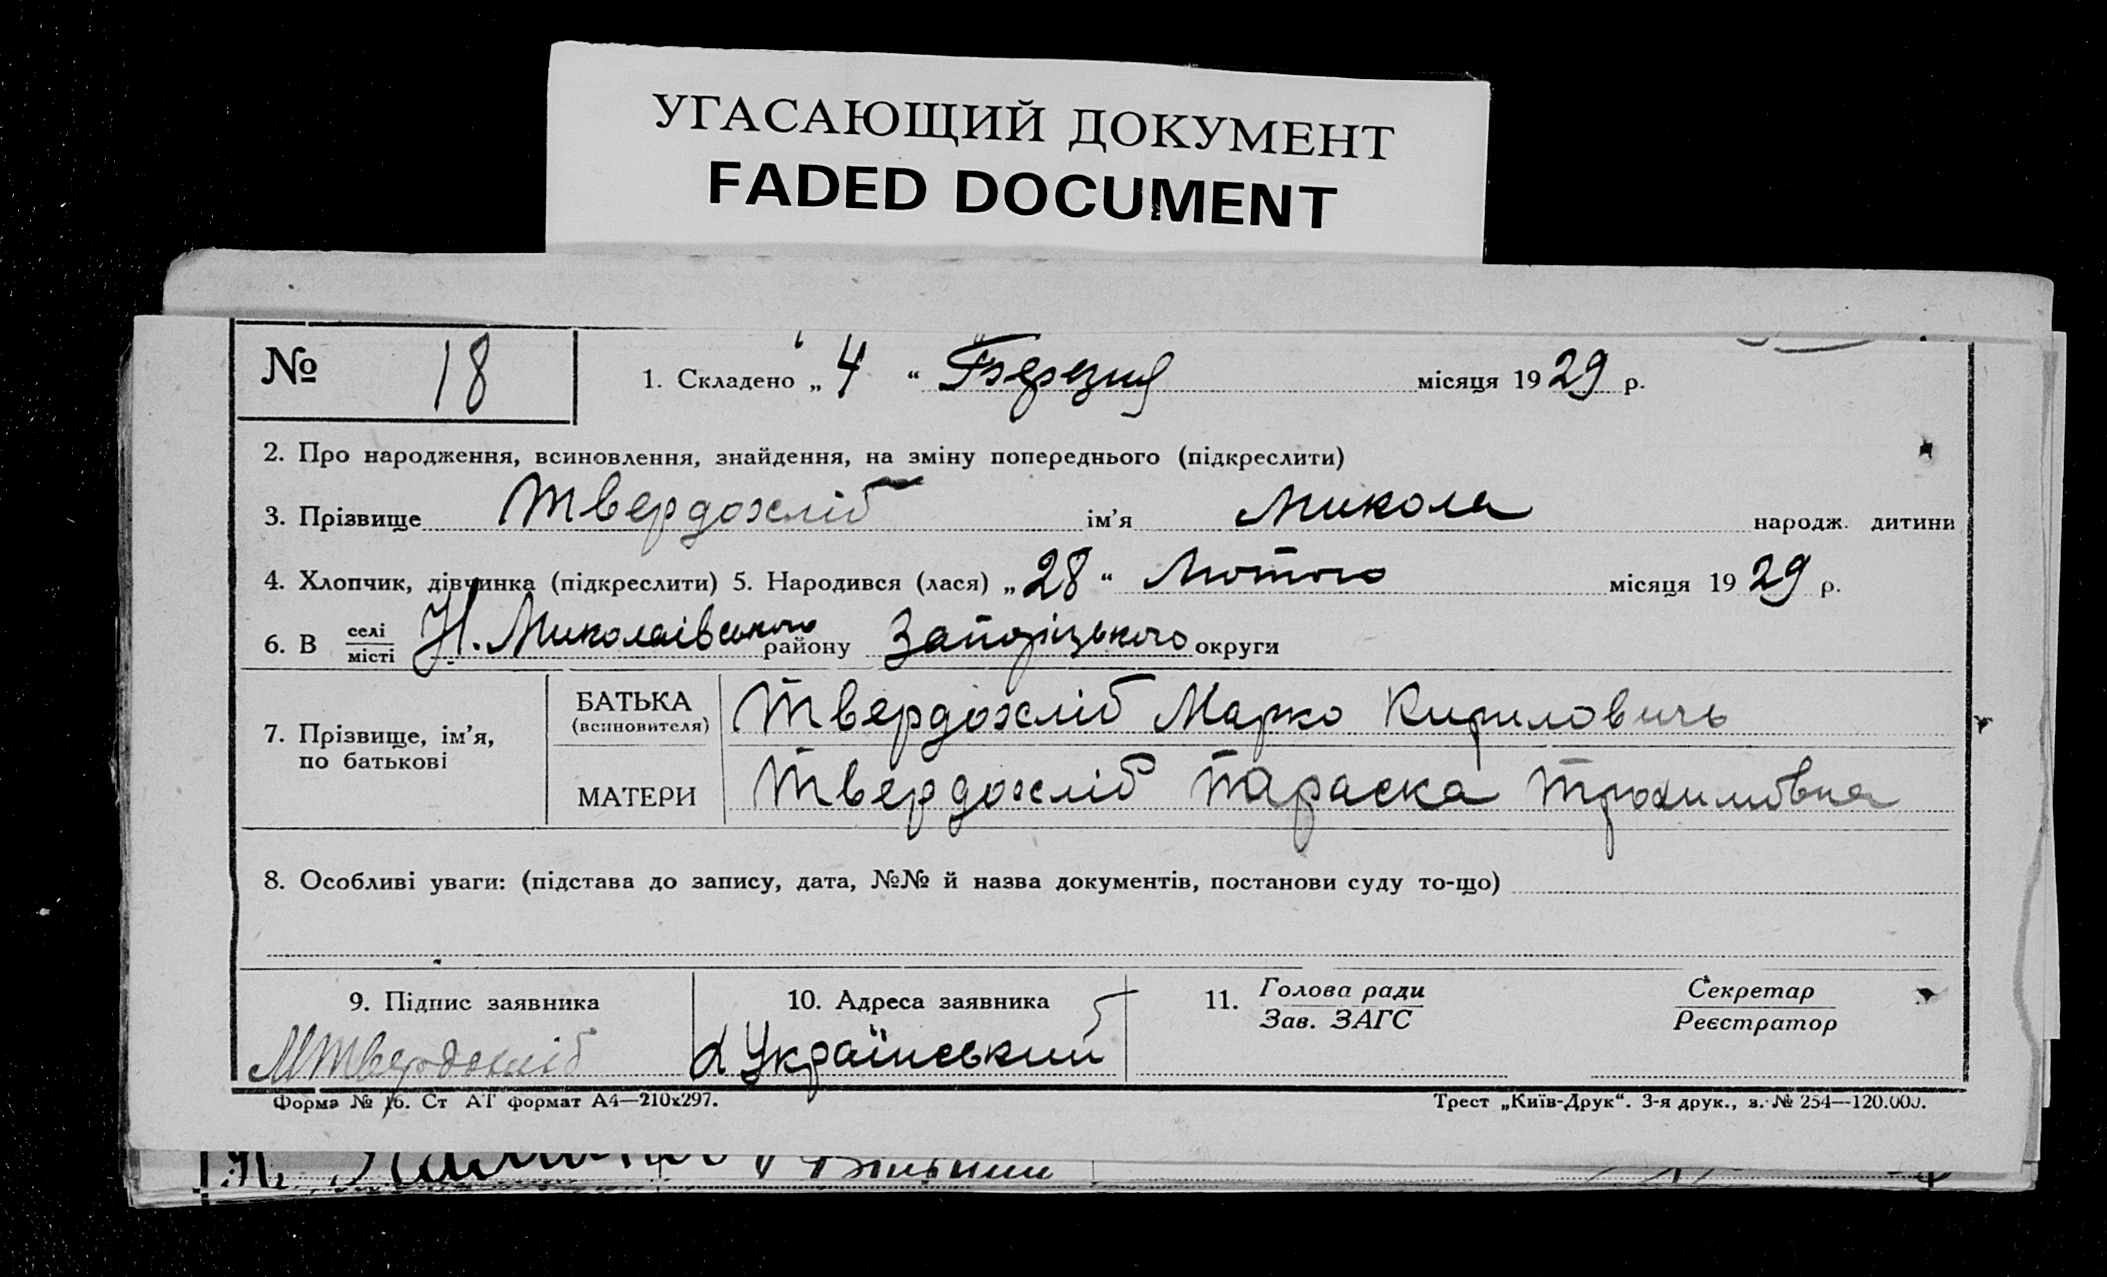 УГАСАЮЩИЙ ДОКУМЕНТ
FADED DOCUMENT
№ 18
1. Складено „ 4 “ Березня місяця 1929 р.
2. Про народження, всиновлення, знайдення, на зміну попереднього (підкреслити)
3. Прізвище Твердохліб ім’я Микола народж. дитини
4. Хлопчик, дівчинка (підкреслити) 5. Народився (лася) „ 28 “ Лютого місяця 1929 р.
6. В селі місті Н. Миколаівського району Запоріцького округи
7. Прізвище, ім’я, по батькові
БАТЬКА (всиновителя) Твердохліб Марко Кириловичь
МАТЕРИ Твердохліб Параска Трохимовна
8. Особливі уваги: (підстава до запису, дата, №№ й назва документів, постанови суду то-що)
9. Підпис заявника
МТвердохліб
10. Адреса заявника
х Український
11. Голова ради
Зав. ЗАГС
Секретар
Реєстратор
Форма № 16. Ст АТ формат А4—210х297.
Трест „Київ-Друк“. 3-я друк., з. № 254—120.000.